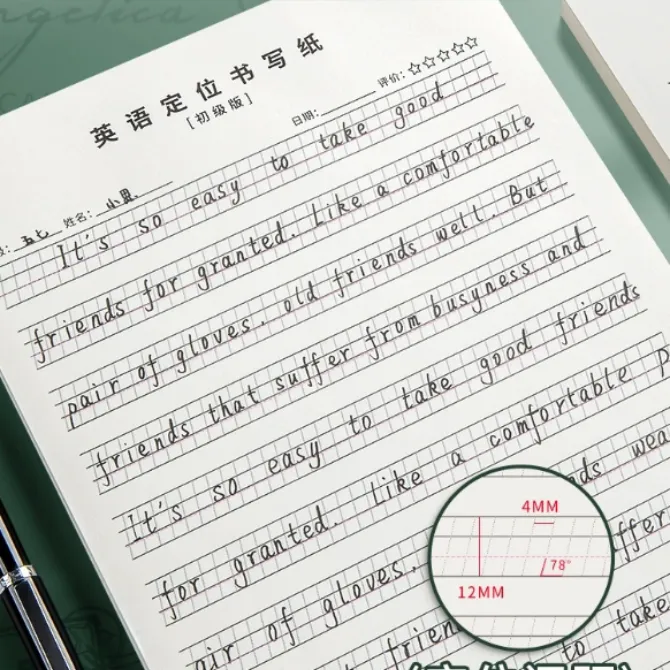 英语定位书写纸
[初级版]
日期: 评价:☆☆☆☆☆
五七 姓名: 小恩
It's so easy to take good
friends for granted. Like a comfortable
pair of gloves. old friends well. But
friends that suffer from busyness and
It's so easy to take good friends
for granted. like a comfortable
pair of gloves. friends
to take
4MM
78°
12MM